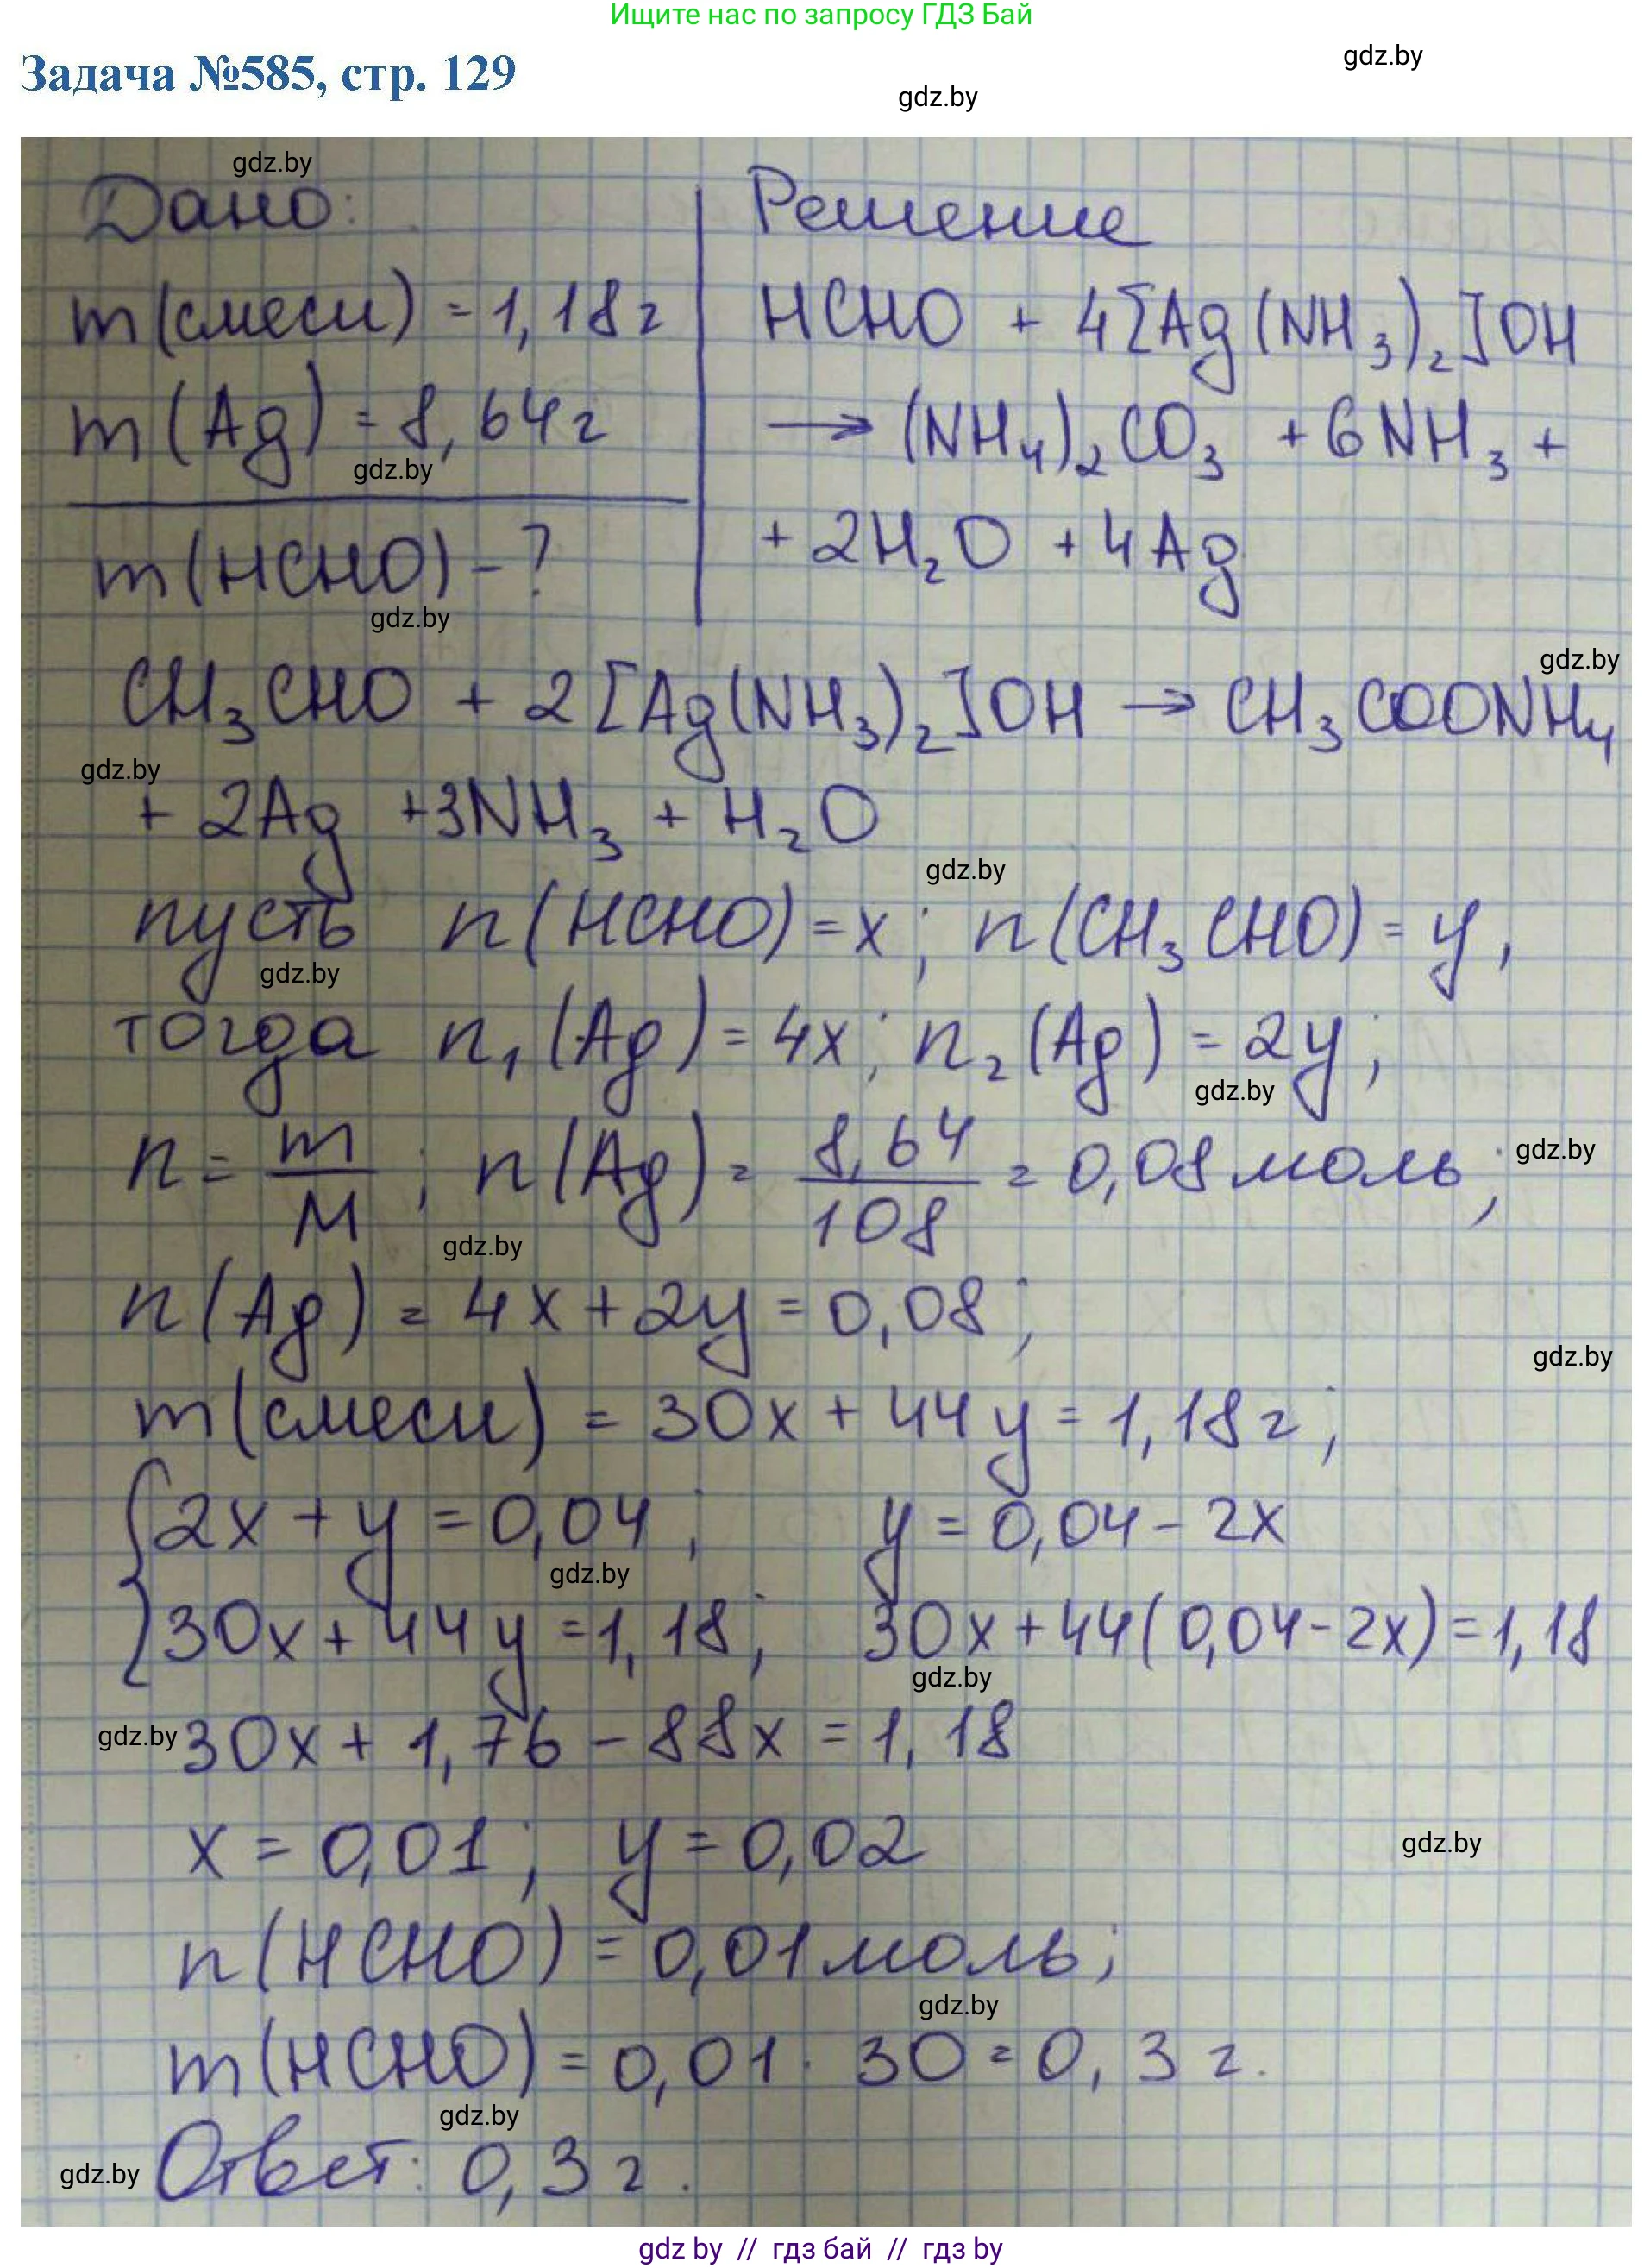 Ищите нас по запросу ГДЗ Бай
gdz.by
Задача №585, стр. 129
gdz.by
gdz.by
Дано:
Решение
m(смеси) = 1,18г
HCHO + 4[Ag(NH₃)₂]OH
m(Ag) = 8,64г
→ (NH₄)₂CO₃ + 6NH₃ +
gdz.by
m(HCHO) - ?
+ 2H₂O + 4Ag
gdz.by
gdz.by
CH₃CHO + 2[Ag(NH₃)₂]OH → CH₃COONH₄
gdz.by
+ 2Ag + 3NH₃ + H₂O
gdz.by
пусть n(HCHO) = x; n(CH₃CHO) = y,
gdz.by
тогда n₁(Ag) = 4x; n₂(Ag) = 2y;
gdz.by
n = m/M; n(Ag) = 8,64/108 = 0,08 моль;
gdz.by
gdz.by
n(Ag) = 4x + 2y = 0,08;
gdz.by
m(смеси) = 30x + 44y = 1,18г;
{2x + y = 0,04; y = 0,04 - 2x
gdz.by
30x + 44y = 1,18; 30x + 44(0,04 - 2x) = 1,18
gdz.by
gdz.by
30x + 1,76 - 88x = 1,18
x = 0,01; y = 0,02
gdz.by
n(HCHO) = 0,01 моль;
gdz.by
m(HCHO) = 0,01 · 30 = 0,3 г.
gdz.by
gdz.by
Ответ: 0,3 г.
gdz by // гдз бай // гдз by